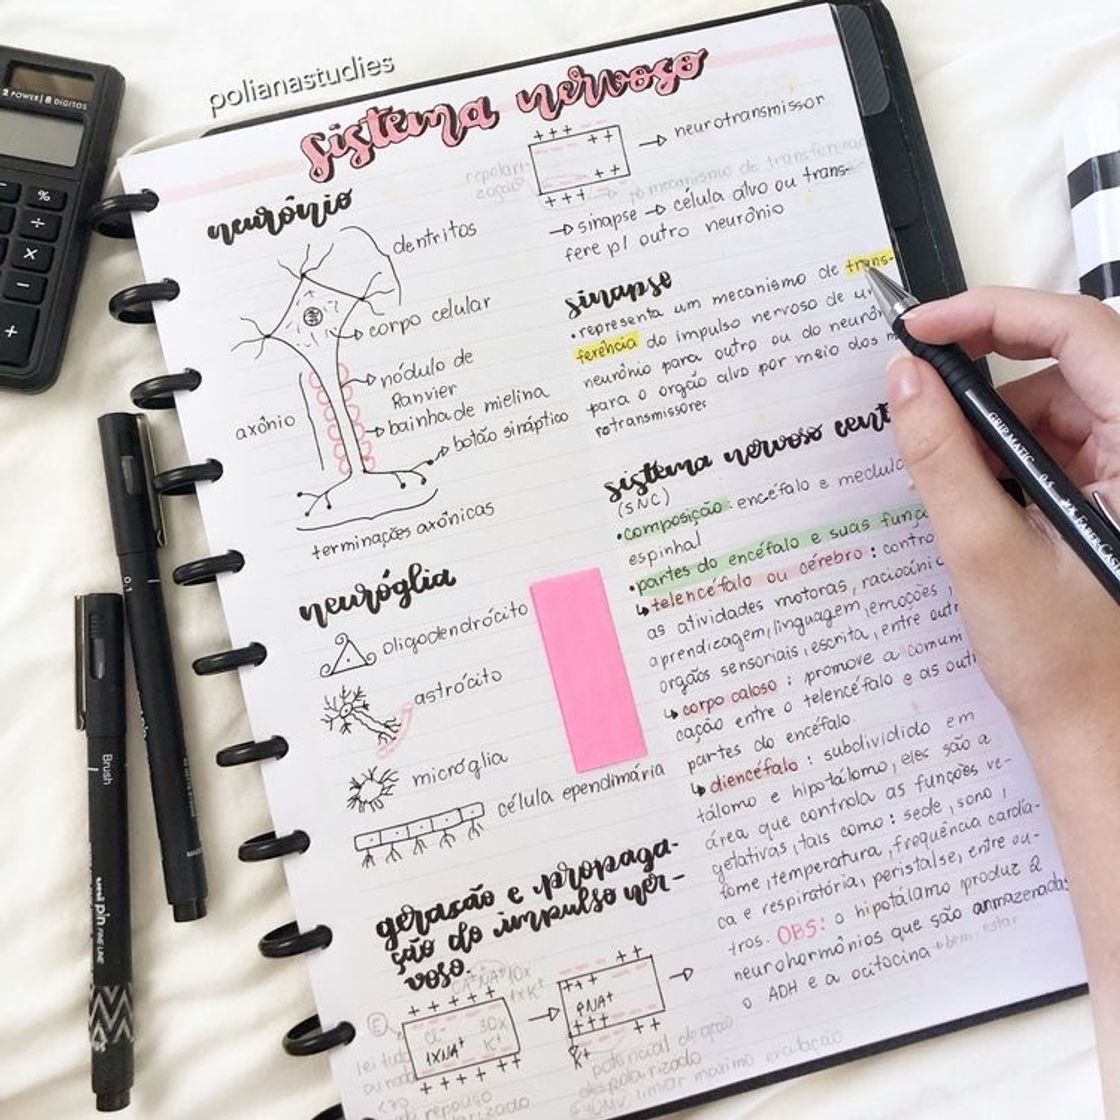 polianastudies
2 POWER | 8 DÍGITOS
sistema nervoso
neurônio
dentritos
corpo celular
nódulo de
Ranvier
axônio
bainha de mielina
botão sináptico
terminações axônicas
neuróglia
oligodendrócito
astrócito
micróglia
célula ependimária
geração e propaga-
ção do impulso ner-
voso.
+ + + + +
1XNA+
30x
K+
+ + + + +
PNA+
+++
K+
+ + + + +
neurotransmissor
+ + +
→ sinapse → célula alvo ou trans-
fere p/ outro neurônio
sinapse
• representa um mecanismo de trans-
ferência do impulso nervoso de
neurônio para outro ou do neurôn
para o orgão alvo por meio dos
rotransmissores
sistema nervoso cent
(SNC)
• composição: encéfalo e medula
espinhal
• partes do encéfalo e suas funç
↳ telencéfalo ou cérebro: contro
as atividades motoras, raciocínio
aprendizagem, linguagem, emoções,
orgãos sensoriais, escrita, entre out
↳ corpo caloso: promove a comuni
cação entre o telencéfalo e as out
partes do encéfalo.
↳ diencéfalo: subdividido em
tálamo e hipotálamo, eles são a
área que controla as funções ve-
getativas, tais como: sede, sono,
fome, temperatura, frequência cardía-
ca e respiratória, peristalse, entre ou-
tros. OBS: o hipotálamo produz 2
neurohormônios que são armazenados
o ADH e a ocitocina → bem-estar
GRIPMATIC 0.5 FABER-CASTELL
0.1
Brush
uni pin FINE LINE